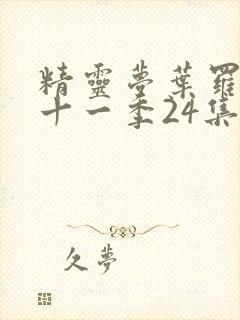 精靈夢葉羅
十一季24集
久夢